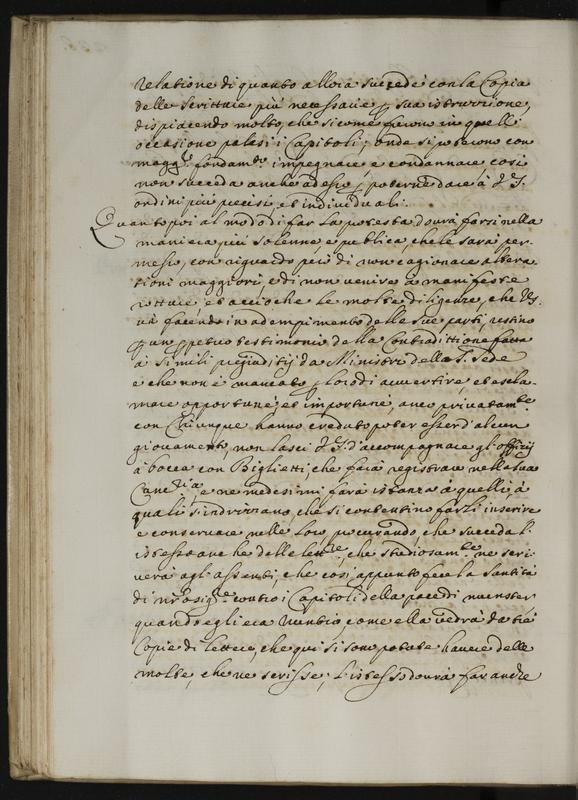 relatione di quanto allora succedè con la Copia
delle scritture più necessarie p sua istruzzione,
dispiacendo molto, che si come furono in quell'
occasione palesi i Capitoli, onde si poterono con
magg.r fondam.to impugnare e condannare così
non succeda anche adesso p poterne dare à V.S.
ordini più precisi, et individuali.
Quanto poi al modo di far la protesta dourà farsi nella
maniera più solenne e publica, che le sarà per-
messo, con riguardo però di non cagionare altera
tioni maggiori, e di non venire a manifeste
rotture, et accioche le molte diligenze, che V.S.
và facendo in adempimento delle sue parti, restino
p un ppetuo testimonio della Contradittione fatta
à simili pregiuditij da Ministri della S. Sede
e che non è mancato p loro di auuertire, et escla-
mare opportunè, et importunè, anco priuatam.te
con Chiunque hanno creduto poter esser d'alcun
giouamento, non lasci V.S. d'accompagnare gl'offitij
à bocca con Biglietti, che farà registrare nella sua
Canc.ria, e ne medesimi farà istanza à quelli, à
quali s'indrizzano, che si contentino farli inserire
e conseruare nelle loro, procurando, che succeda l'
istesso anche delle lett.re, che studiosam.te ne scri-
uerà agl'assenti, che così appunto fece la Santità
di n'ro Sig.re contro i Capitoli della pace di Munster
quando egli era Nuntio come ella vedrà da trè
Copie di lettere, che qui si sono potute hauere delle
molte, che ne scrisse, l'istesso dourà far anche